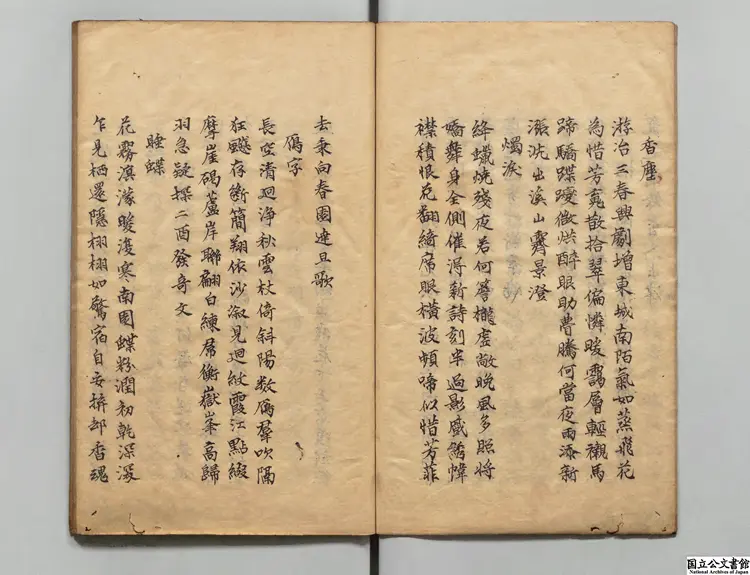 香塵
游冶三春興劇增東城南陌氣如蒸飛花
為惜芳亮散拾翠偏憐暖靄層輕襯馬
蹄驕蹀躞微烘醉眼助瞢騰何當夜雨添新
漲洗出溪山霽景澄
燭淚
絳蠟燒殘夜若何簷櫳虛敞晚風多照將
嬌舞身全側催得新詩刻半過影感錦幃
襟積恨花翻綺席眼橫波頻啼似惜芳菲
去秉向春園達旦歌
鴈字
長空清迥淨秋雲杖倚斜陽数鴈羣吹隔
狂飈存斷簡翔依沙漵見迴紋霞江點綴
摩崖碣蘆岸聯翩白練帬衡嶽峯高歸
羽急疑探二酉發奇文
睡蝶
花霧溟濛暖復寒南園蝶粉潤初乾深深
乍見栖還隱栩栩如驚宿自安擠却香魂
国立公文書館
National Archives of Japan